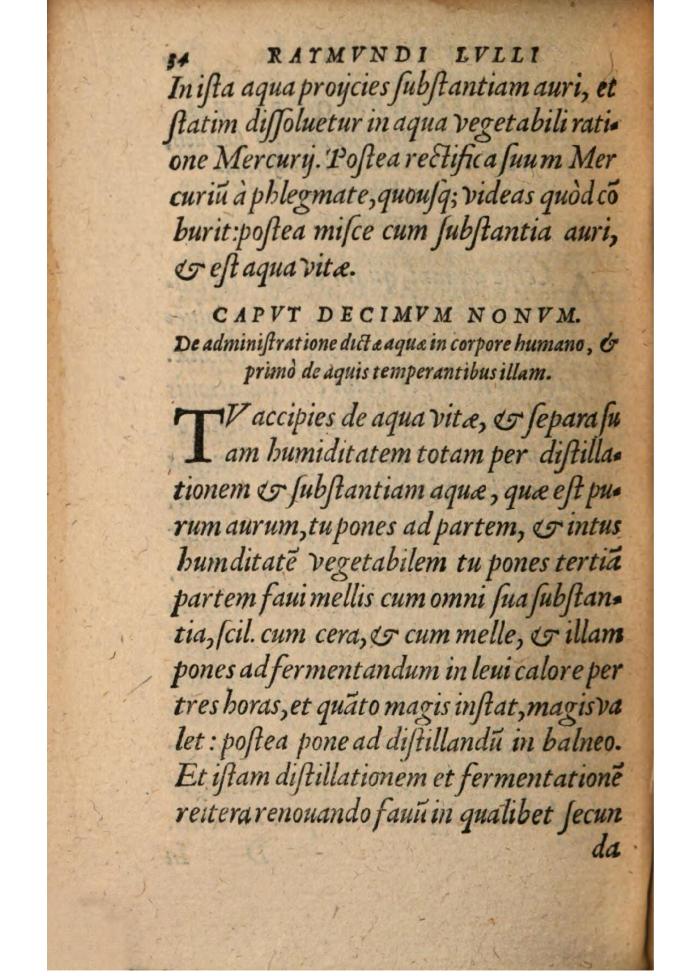 34 RAYMVNDI LVLLI
In iſta aqua proijcies ſubſtantiam auri, et
ſtatim diſſoluetur in aqua vegetabili rati-
one Mercurij. Poſtea rectifica ſuum Mer
curiũ à phlegmate, quouſq; videas quòd cõ
burit: poſtea miſce cum ſubſtantia auri,
& eſt aqua vitæ.
CAPVT DECIMVM NONVM.
De adminiſtratione dictæ aquæ in corpore humano, &
primò de aquis temperantibus illam.
TV accipies de aqua vitæ, & ſepara ſu
am humiditatem totam per diſtilla-
tionem & ſubſtantiam aquæ, quæ eſt pu-
rum aurum, tu pones ad partem, & intus
humditatē vegetabilem tu pones tertiã
partem faui mellis cum omni ſua ſubſtan-
tia, ſcil. cum cera, & cum melle, & illam
pones ad fermentandum in leui calore per
tres horas, et quãto magis inſtat, magis va
let: poſtea pone ad diſtillandũ in balneo.
Et iſtam diſtillationem et fermentationē
reitera renouando fauũ in qualibet ſecun
da